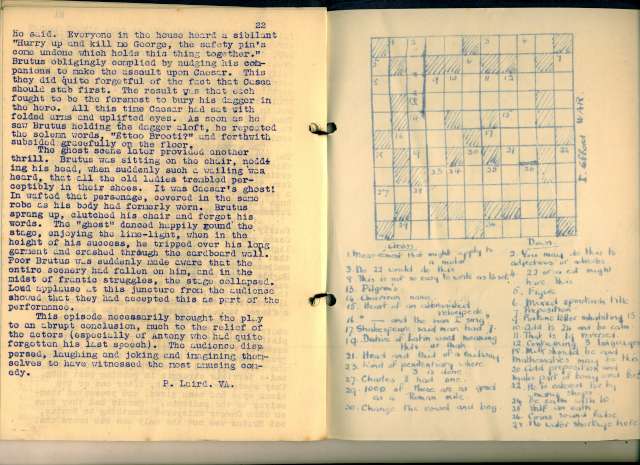 22
He said. Everyone in the house heard a sibilant
"Hurry up and kill me George, the safety pin's
come undone which holds this thing together."
Brutus obligingly complied by nudging his com-
panions to make the assault upon Caesar. This
they did quite forgetful of the fact that Casca
should stab first. The result was that each
fought to be the foremost to bury his dagger in
the hero. All this time Caesar had sat with
folded arms and uplifted eyes. As soon as he
saw Brutus holding the dagger aloft, he repeated
the solemn words, "Ettoo Brooti?" and forthwith
subsided gracefully on the floor.
The ghost scene later provided another
thrill. Brutus was sitting on the chair, nodd-
ing his head, when suddenly such a wailing was
heard, that all the old ladies trembled per-
ceptibly in their shoes. It was Caesar's ghost!
In wafted that personage, covered in the same
robe as his body had formerly worn. Brutus
sprang up, clutched his chair and forgot his
words. The "ghost" danced happily round the
stage, enjoying the lime-light, when in the
height of his success, he tripped over his long
garment and crashed through the cardboard wall.
Poor Brutus was suddenly made aware that the
entire scenery had fallen on him, and in the
midst of frantic struggles, the stage collapsed.
Loud applause at this juncture from the audience
showed that they had accepted this as part of the
performance.
This episode necessarily brought the play
to an abrupt conclusion, much to the relief of
the actors (especially of Antony who had quite
forgotten his last speech). The audience disp
persed, laughing and joking and imagining them-
selves to have witnessed the most amusing com-
edy.
P. Laird. VA.
Down.
1. Measurement that might apply to
a motor
3. No 22 would do this
9. This is not so easy to write as to
13. Pilgrim's
14. Christian name
15. Heart of an
16. " — and the man I sing"
17. Shakespeare said man had 7.
19. Dative of Latin word meaning
this or that
21. Head and tail of a
23. Kind of penitentiary where
3 is done
27. Charles I had one.
29. 1000 of these are as good
as a Roman mile
30. Change the vowel and beg
2. You may do this to
22 or a cat might
have this
5. Finger
Preposition
10. Add to 24 and be calm
11. That is to reverse
12. Contraction, 3 languages
15. Miss should be and
Mathematics may be this
20. Latin preposition and
24. Be calm with 10
25. Half an
26. Cross sound
28. No water shortage here